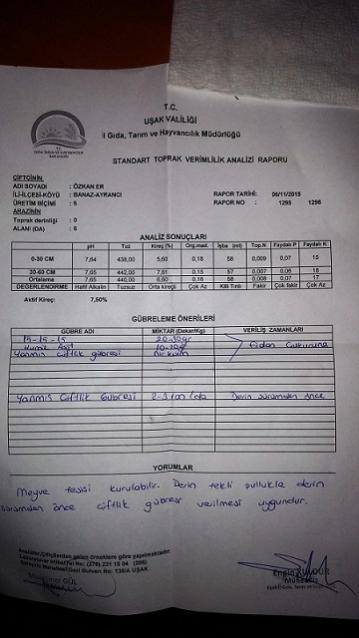 T.C.
UŞAK VALİLİĞİ
İl Gıda, Tarım ve Hayvancılık Müdürlüğü
STANDART TOPRAK VERİMLİLİK ANALİZİ RAPORU
ÇİFTÇİNİN
ADI SOYADI : ÖZKAN ER
İLİ-İLÇESİ-KÖYÜ : BANAZ-AYRANCI RAPOR TARİHİ: 06/11/2015
ÜRETİM BİÇİMİ : 6 RAPOR NO : 1295 1296
ARAZİNİN
Toprak derinliği : 0
ALANI (DA) : 6
ANALİZ SONUÇLARI
pH Tuz Kireç (%) Org.mad. İşba (ml) Top.N Faydalı P Faydalı K
0-30 CM 7,64 438,00 5,60 0,18 58 0,009 0,07 15
30-60 CM 7,65 442,00 7,61 0,15 57 0,007 0,06 18
Ortalama 7,65 440,00 6,60 0,16 58 0,008 0,07 17
DEĞERLENDİRME Hafif Alkalin Tuzsuz Orta kireçli Çok Az Killi Tınlı Fakir Çok fakir Çok Az
Aktif Kireç: 7,50%
GÜBRELEME ÖNERİLERİ
GÜBRE ADI MİKTAR (Dekar/Kg) VERİLİŞ ZAMANLARI
15-15-15 20-30gr
Humik Asit 10-20gr Fidan Çukuruna
Yanmış Çiftlik gübresi
Yanmış Çiftlik Gübresi 2-3 ton/da Derin sürümden önce
YORUMLAR
Meyve tesisi kurulabilir. Derin tekli pullukla derin
sürümden önce çiftlik gübresi verilmesi uygundur.
Analizler,Çiftçilerden gelen örneklere göre yapılmaktadır.
GÜL